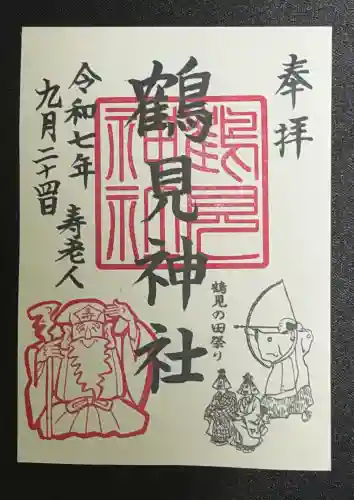 奉拝
鶴見神社
鶴見神社
鶴見の田祭り
令和七年
九月二十四日
寿老人
寿